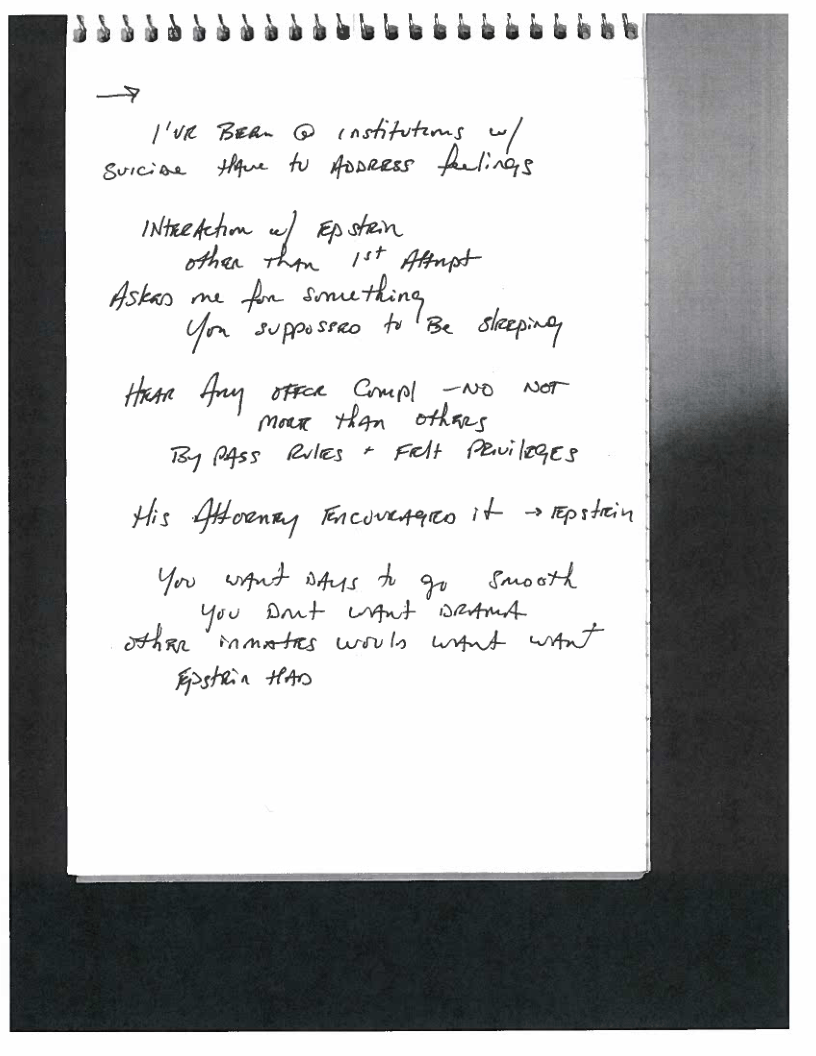 →
I'VE BEEN @ institutions w/
SUICIDE HAVE to ADDRESS feelings
INTERActION w/ EpstEin
other than 1st Attmpt
Asked me for something
You supposseD to Be slEEping
HEAR Any oFFcR Compl — NO NOT
MORE than others
By PASS RulEs + FElt PRivilEgEs
His AttornEy EncouRAgED it → EpstEin
You wAnt DAys to go Smooth
you Dont wAnt DRAMA
other inmAtEs would wAnt wAnt
EpstEin HAD